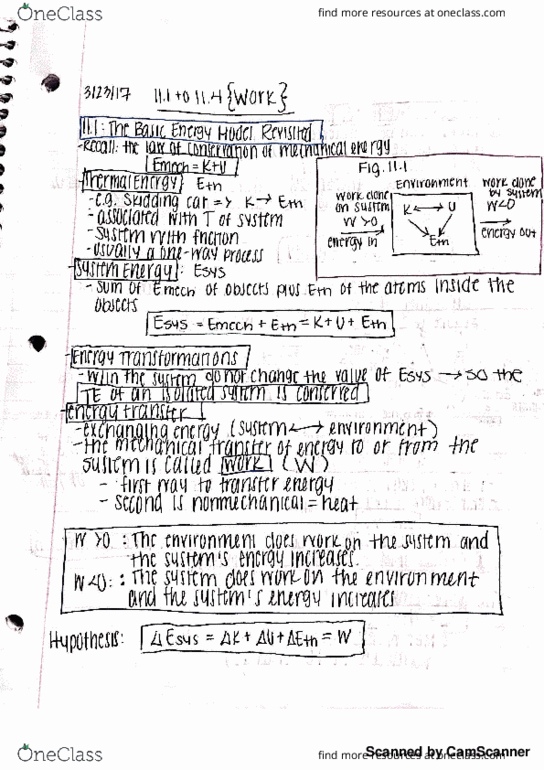 OneClass
find more resources at oneclass.com
3/23/17 11.1 to 11.4 {Work}
11.1: The Basic Energy Model Revisited
-Recall: the law of conservation of mechanical energy
Emech = K+U
-Thermal Energy: Eth
-e.g. skidding car => K → Eth
-associated with T of system
-system with friction
-usually a one-way process
Fig. 11.1
Environment
work done on system
W >0
energy in
K ↔ U
Eth
work done by system
W<0
energy out
-System Energy: Esys
-sum of Emech of objects plus Eth of the atoms inside the
objects
Esys = Emech + Eth = K + U + Eth
-Energy Transformations
-w/in the system do not change the value of Esys → so the
TE of an isolated system is conserved
-energy transfer
-exchanging energy (system ↔ environment)
-the mechanical transfer of energy to or from the
system is called work (W)
- first way to transfer energy
- second is nonmechanical = heat
W >0 : The environment does work on the system and
the system's energy increases.
W<0: : The system does work on the environment
and the system's energy increases
Hypothesis: ΔEsys = ΔK + ΔU + ΔEth = W
OneClass
find more resources at oneclass.com
Scanned by CamScanner